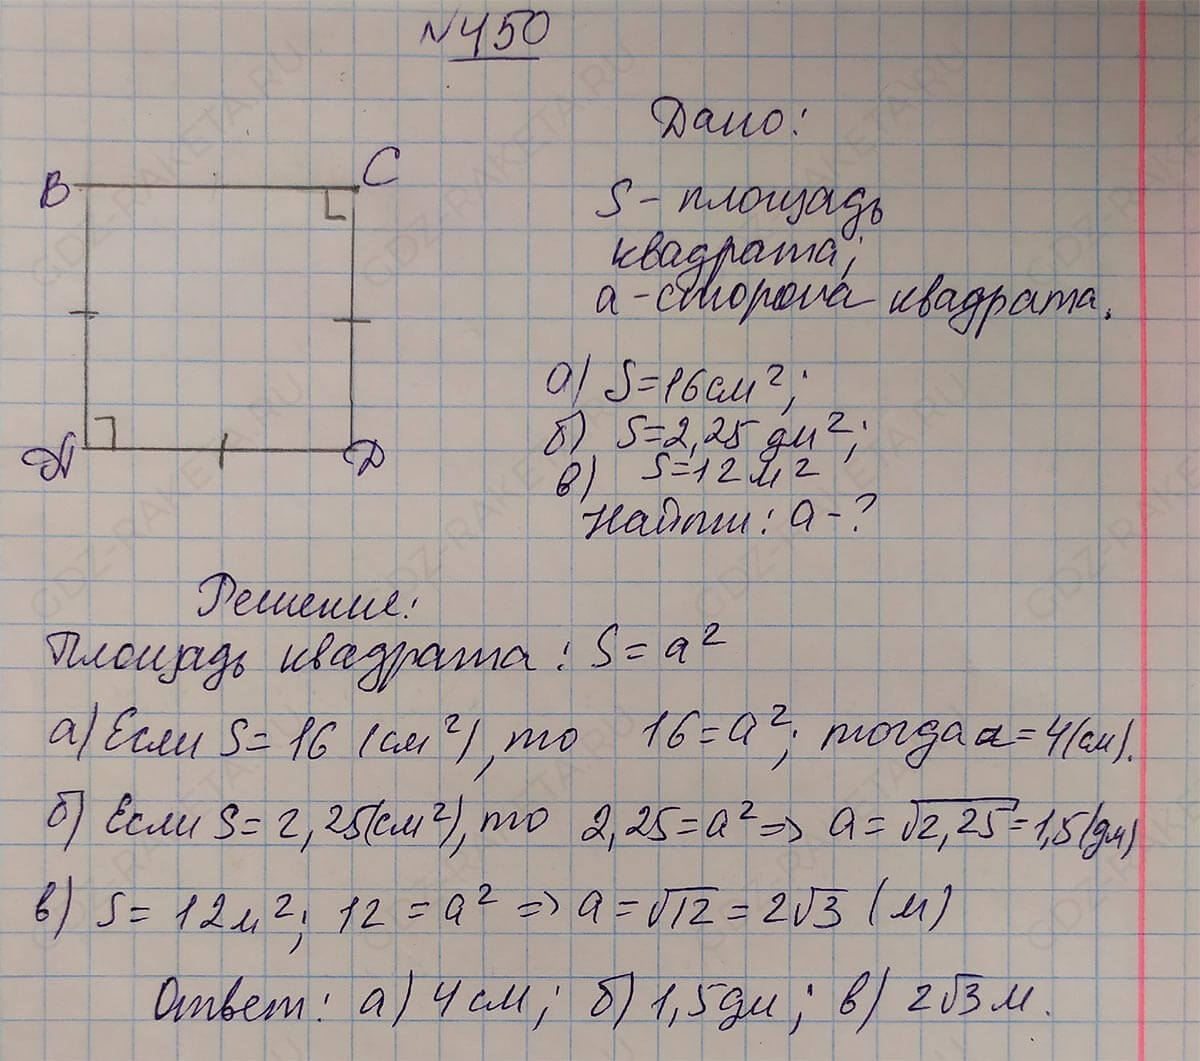 №450
B
C
A
D
Дано:
S - площадь
квадрата;
a - сторона квадрата.
а) S=16 см²;
б) S=2,25 дм²;
в) S=12 м²
Найти: a-?
Решение:
Площадь квадрата: S=a²
а) Если S=16 (см²), то 16=a²; тогда a=4(см).
б) Если S=2,25(см²), то 2,25=a² => a=√2,25=1,5(дм)
в) S=12м²; 12=a² => a=√12=2√3 (м)
Ответ: а) 4 см; б) 1,5дм; в) 2√3 м.
GDZ-RAKETA.RU